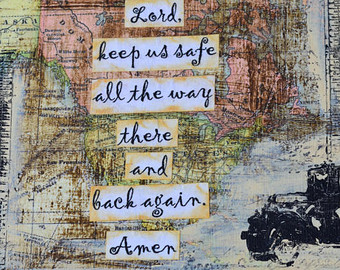 Lord,
keep us safe
all the way
there
and
back again.
Amen